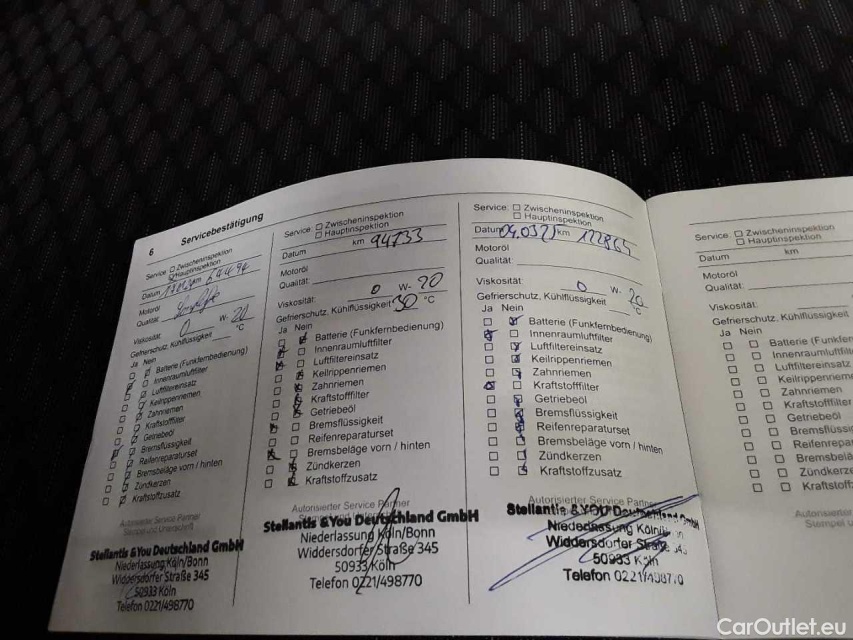 6 Servicebestätigung
Service: Zwischeninspektion
Hauptinspektion
Datum km 64494
Motoröl
Qualität:
Viskosität: 0 W- 20
Gefrierschutz, Kühlflüssigkeit °C
Ja Nein
Batterie (Funkfernbedienung)
Innenraumluftfilter
Luftfiltereinsatz
Keilrippenriemen
Zahnriemen
Kraftstofffilter
Getriebeöl
Bremsflüssigkeit
Reifenreparaturset
Bremsbeläge vorn / hinten
Zündkerzen
Kraftstoffzusatz
Autorisierter Service Partner
Stempel und Unterschrift
Stellantis &You Deutschland GmbH
Niederlassung Köln/Bonn
Widdersdorfer Straße 345
50933 Köln
Telefon 0221/498770
Service: Zwischeninspektion
Hauptinspektion
Datum km 94733
Motoröl
Qualität:
Viskosität: 0 W- 20
Gefrierschutz, Kühlflüssigkeit 30 °C
Ja Nein
Batterie (Funkfernbedienung)
Innenraumluftfilter
Luftfiltereinsatz
Keilrippenriemen
Zahnriemen
Kraftstofffilter
Getriebeöl
Bremsflüssigkeit
Reifenreparaturset
Bremsbeläge vorn / hinten
Zündkerzen
Kraftstoffzusatz
Autorisierter Service Partner
Stellantis &You Deutschland GmbH
Niederlassung Köln/Bonn
Widdersdorfer Straße 345
50933 Köln
Telefon 0221/498770
Service: Zwischeninspektion
Hauptinspektion
Datum km 122865
Motoröl
Qualität:
Viskosität: 0 W- 20
Gefrierschutz, Kühlflüssigkeit °C
Ja Nein
Batterie (Funkfernbedienung)
Innenraumluftfilter
Luftfiltereinsatz
Keilrippenriemen
Zahnriemen
Kraftstofffilter
Getriebeöl
Bremsflüssigkeit
Reifenreparaturset
Bremsbeläge vorn / hinten
Zündkerzen
Kraftstoffzusatz
Autorisierter Service Partner
Stellantis &YOU Deutschland GmbH
Niederlassung Köln
Widdersdorfer Straße 345
50933 Köln
Telefon 0221/498770
Service: Zwischeninspektion
Hauptinspektion
Datum km
Motoröl
Qualität:
Viskosität:
Gefrierschutz, Kühlflüssigkeit
Ja Nein
Batterie (Funkfern
Innenraumluftfilt
Luftfiltereinsatz
Keilrippenriemen
Zahnriemen
Kraftstofffilter
Getriebeöl
Bremsflüssig
Reifenrepara
Bremsbelä
Zündkerze
Kraftstoff
Autorisierter
Stempel u
CarOutlet.eu